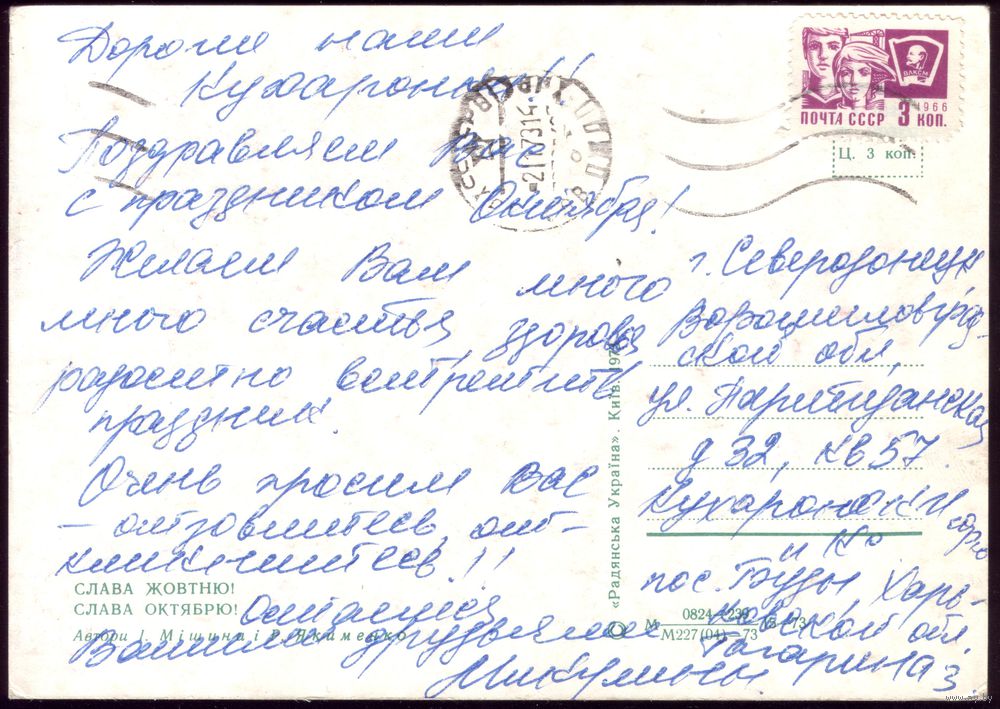 Дорогие наши
Кухаронки!!
Поздравляем Вас
с праздником Октября!
Желаем Вам много
много счастья, здоровья
радостно встретить
праздник.
Очень просим Вас
– отзовитесь, отк-
ликнитесь!!
Остаемся
Вашими друзьями
Микулины.
СЛАВА ЖОВТНЮ!
СЛАВА ОКТЯБРЮ!
Автори І. Мішина і Г. Якименко
«Радянська Україна». Київ.
ВЛКСМ
1966
ПОЧТА СССР 3 КОП.
Ц. 3 коп.
г. Северодонецк
Ворошиловград-
ской обл,
ул. Партизанская
д 32, кв 57.
Кухаронки
и Ко
пос. Буды, Харь-
ковской обл
Гагарина 3.
М 0824—239
М227(04)—73
73